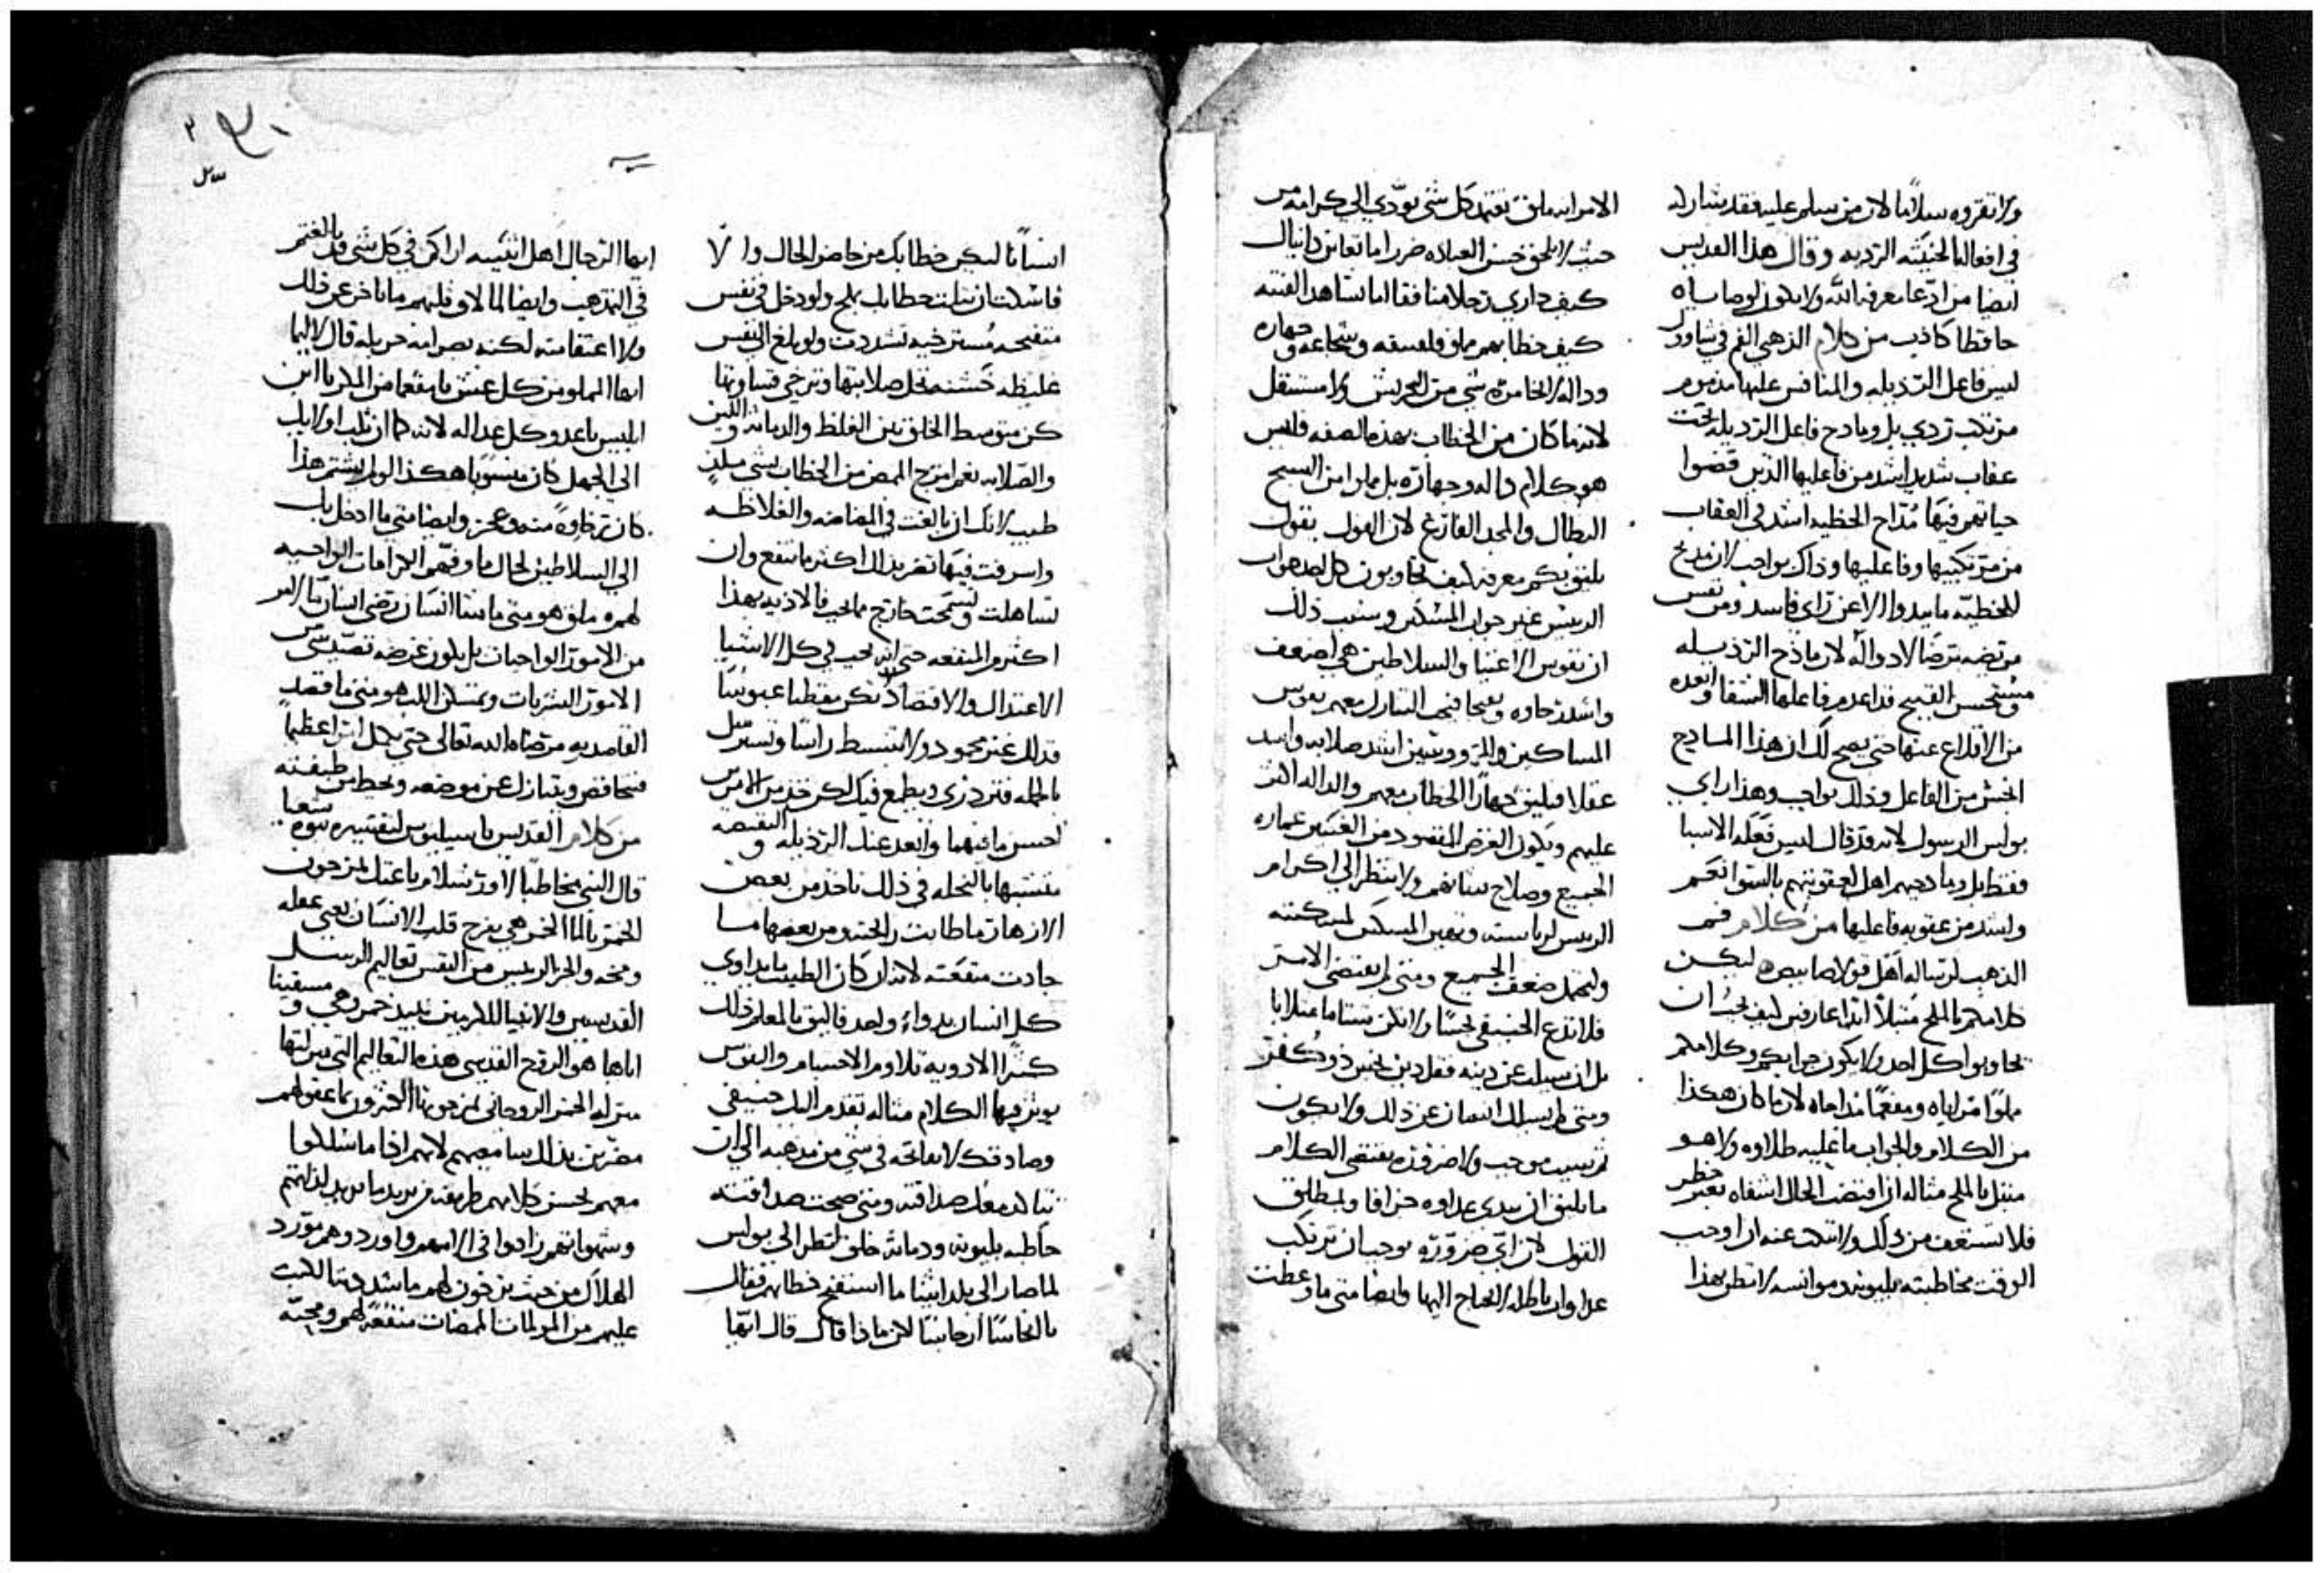 ولا تقروه سلاما لان من سلم عليه فقد شاركه
في افعاله الخبيثه الرديه وقال هذا القديس
ايضا من ادعا معرفه الله ولا يكون لوصاياه
حافظا كاذب من كلام الذهبي الفم في
ليس فاعل الرذيله والمنافس عليها مذموم
بل ومادح فاعل الرذيله تحت
عقاب شديد اشد من فاعليها الذين قضوا
حياتهم فيها مداح الخطيه اشد في العقاب
من مرتكبيها وفاعليها وذاك بواجب لان مديح
للخطيه ما يبدو الا عن راي فاسد ومن نفس
مريضه مرضا لا دوا له لان مادح الرذيله
ومستحسن القبيح قد اعدم فاعلها الشفا وابعده
من الاقلاع عنها حتى يصح لك ان هذا المادح
من الفاعل وذلك بواجب وهذا راي
بولس الرسول لانه قد قال ليس فعله الاسيا
فقط بل ومادحيهم اهل لعقوبتهم بالسوا نعم
واشد من عقوبه فاعليها من كلام فم
الذهب لرساله اهل قولاصايس ليكن
كلامكم بالملح متبلا ابدا عارفين كيف يجب ان
تجاوبوا كل احد ولا يكون جوابكم وكلامكم
لان ما كان هكذا
من الكلام والجواب ما عليه طلاوه ولا هو
متبل بالملح مثاله ان اقتضت الحال اشفاه بغير خطر
فلا تستعف من ذلك ولا تنكث عنه ان اوجب
الوقت مخاطبته بليونه وموانسه لا تنظر بهذا
الامر انه ملق تعتمد كل شي يودي الى كرامه من
حيث لا يلحق حسن العباده ضررا ما تعاين دانيال
كيف داري رجلا منافقا اما تشاهد الفتيه
كيف خطابهم مملو فلسفه وشجاعه وجهاره
وداله لا تخامره شي من التحريش ولا مستثقل
لانه ما كان من الخطاب بهذه الصفه فليس
هو كلام داله وجهاره بل مملوا من السبح
البطال والمجد الفارغ لان القول بقول
يليق بكم معرفه كيف تجاوبون كل احد هو ان
الريس غير جواب المسكين وسبب ذلك
ان نفوس الاغنيا والسلاطين هي اضعف
واشد رخاوه وبحا فيجب التنازل معهم نفوس
المساكين والمروسين اشد صلابه واشد
عقلا فيليق جهارا الخطاب معهم والداله اكثر
عليهم ويكون الغرض المقصود من القسمين عماره
الجميع وصلاح شانهم ولا تنظر الى اكرام
الريس لرياسته وتعبير المسكين لمسكنته
ولتحمل ضعف الجميع ومتى لم يقتضي الامر
فلا تدع الحنيفي نجسا ولا تكن شتاما مغلايا
بل ان سيلت عن دينه فقل دين نجس ذو كفر
ومتى لم يسالك انسان عن ذلك ولا يكون
ثم سبب موجب ولا ضروره تقتضي الكلام
ما يليق ان تبدي عداوه جزافا ولمطلق
القول لان اي ضروره توجب ان ترتكب
عداوات باطله لا تحتاج اليها وايضا متى ما وعظت
انسانا ليكن خطابك من حاضر الحال والا
فاسكت ان تبلت خطابك بملح ولو دخل في نفس
متفيحه مسترخيه تشددت ولو بلغ الى نفس
غليظه خشنه تحل صلابتها وترخي قساوتها
كن متوسط الخلق بين الغلظ والدماثه واللين
والصلابه نعم امزج الممض من الخطاب بشي ملذ
طيب لانك ان بالغت في المضاضه والغلاظه
واسرفت فيها تضر بذلك اكثر ما تنفع وان
تساهلت وتسمحت خارج ما يجب فالاذيه بهذا
اكثر والمنفعه حتى انه يجب في كل الاشيا
الاعتدال والاقتصاد لا تكن مقطبا عبوسا
فذلك غير محمود ولا تنبسط راسا وتسترسل
بالجمله فتزدري ويطمع فيك لكن خذ من الامرين
احسن ما فيهما وابعد عنك الرذيله والنقيصه
متشبها بالنحله في ذلك تاخذ من بعض
الازهار ما طابت رايحته ومن بعضها ما
جادت منفعته لانه ان كان الطبيب ما يداوي
كل انسان بدواء واحد فاليق بالمعلم ذلك
كثيرا الادويه تلاوم الاجسام والنفوس
يوثر فيها الكلام مثاله تقدم اليك حنيفي
وصادقك لا تفاتحه في شي من مذهبه الى ان
تتاكد معك صداقته ومتى صحت صداقته
خاطبه بليونه ودماثه خلق انظر الى بولس
لما صار الى بلد اثينا ما استفتح خطابهم فقال
يا انجاسا ارجاسا لكن ماذا قال قال ايها
ايها الرجال اهل اثينيه اراكم في كل شي قد بالغتم
في التمذهب وايضا لما لاق ثلبهم ما تاخر عن ذلك
ولا اعتقلته لكنه بصرامه جزيله قال لاليما
ايها المملو من كل غش يا مفعما من المكر يا ابن
ابليس يا عدو كل عداله لانه كما ان ثلب اولايك
الى الجهل كان منسوبا هكذا لو لم يشتم هذا
كان رخاوه منه وعجز وايضا متى ما ادخل بك
الى السلاطين لحال ما وفهم الكرامات الواجبه
لهم ملق هو متى ما شا انسان يرضي انسان ما ليس
من الامور الواجبات بل يكون غرضه تصيد شي من
الامور البشريات وتمسكن اللب هو متى ما قصد
القاصد به مرضاه الله تعالى حتى يكمل امرا عظيما
فيتخافض ويتنازل عن موضعه ويحط من طبقته
من كلام القديس باسيليوس لتفسيره نبوه شعيا
قال النبي مخاطبا لاورشليم باعتك لمزجون
الخمر بالما الخمر هي يفرح قلب الانسان يعني عقله
ومخه والخمر الرييس من النفس تعاليم الرسل
القديسين والانبيا المكرمين نبيذ خمر هي ومسقينا
اياها هو الروح القدسي هذه التعاليم التي منزلتها
منزله الخمر الروحاني يمزجونها الكثيرون ما عقولهم
مضرين بذلك سامعيهم لانهم اذا ما سلكوا
معهم لحسن كلامهم طريقه من يريد ما يريد لذاتهم
وشهواتهم زادوا في الامهم واوردوهم مورد
الهلاك من حيث يزخرفون لهم ما يشد دينا للسكيت
عليهم من المولمات الممضات منفعه لهم ومحبه